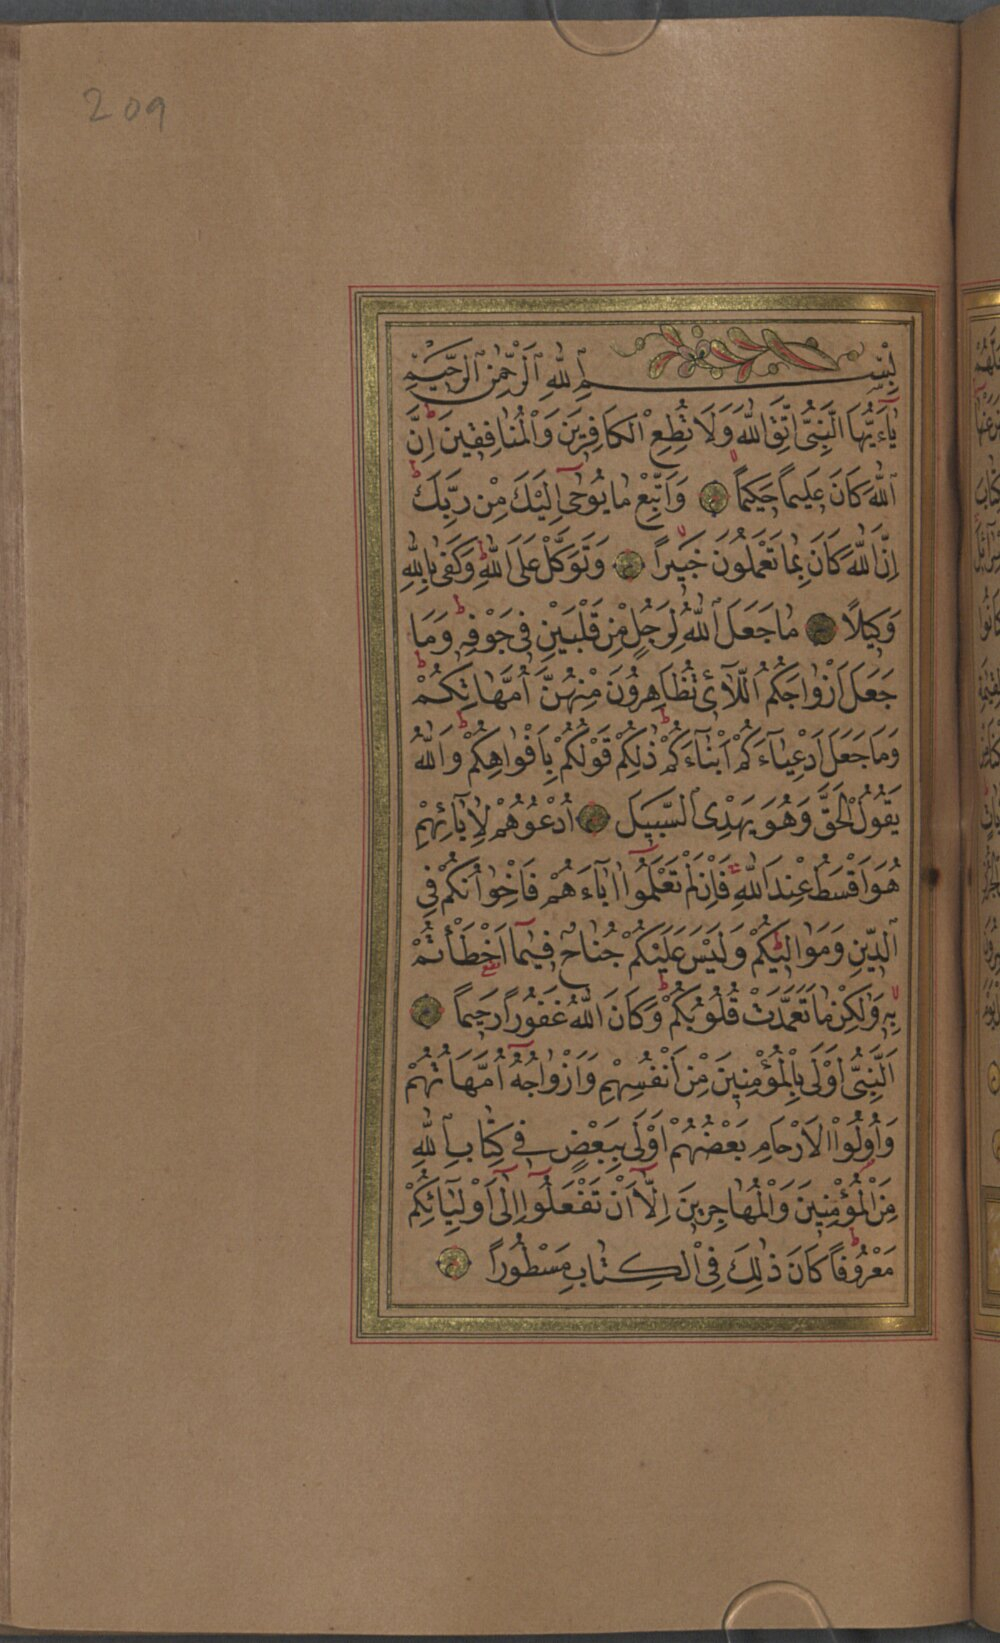 209
بِسْمِ اللهِ الرَّحْمٰنِ الرَّحِيمِ
يَٓاءَيُّهَا النَّبِىُّ اتَّقِ اللهَ وَلَا تُطِعِ الْكَافِرِينَ وَالْمُنَافِقِينَ اِنَّ
اللهَ كَانَ عَلِيمًا حَكِيمًا وَاتَّبِعْ مَا يُوحٰٓى اِلَيْكَ مِنْ رَبِّكَ
اِنَّ اللهَ كَانَ بِمَا تَعْمَلُونَ خَبِيرًا وَتَوَكَّلْ عَلَى اللهِ وَكَفٰى بِاللهِ
وَكِيلًا مَا جَعَلَ اللهُ لِرَجُلٍ مِنْ قَلْبَيْنِ فِى جَوْفِهِ وَمَا
جَعَلَ اَزْوَاجَكُمُ الّٰلَٓائِ تُظَاهِرُونَ مِنْهُنَّ اُمَّهَاتِكُمْ
وَمَا جَعَلَ اَدْعِيَٓاءَكُمْ اَبْنَٓاءَكُمْ ذٰلِكُمْ قَوْلُكُمْ بِاَفْوَاهِكُمْ وَاللهُ
يَقُولُ الْحَقَّ وَهُوَ يَهْدِى السَّبِيلَ اُدْعُوهُمْ لِاٰبَٓائِهِمْ
هُوَ اَقْسَطُ عِنْدَ اللهِ فَاِنْ لَمْ تَعْلَمُٓوا اٰبَٓاءَهُمْ فَاِخْوَانُكُمْ فِى
الدِّينِ وَمَوَالِيكُمْ وَلَيْسَ عَلَيْكُمْ جُنَاحٌ فِيمَٓا اَخْطَأْتُمْ
بِهِ وَلٰكِنْ مَا تَعَمَّدَتْ قُلُوبُكُمْ وَكَانَ اللهُ غَفُورًا رَحِيمًا
اَلنَّبِىُّ اَوْلٰى بِالْمُؤْمِنِينَ مِنْ اَنْفُسِهِمْ وَاَزْوَاجُهُٓ اُمَّهَاتُهُمْ
وَاُولُوا الْاَرْحَامِ بَعْضُهُمْ اَوْلٰى بِبَعْضٍ فِى كِتَابِ اللهِ
مِنَ الْمُؤْمِنِينَ وَالْمُهَاجِرِينَ اِلَّٓا اَنْ تَفْعَلُٓوا اِلٰٓى اَوْلِيَٓائِكُمْ
مَعْرُوفًا كَانَ ذٰلِكَ فِى الْكِتَابِ مَسْطُورًا